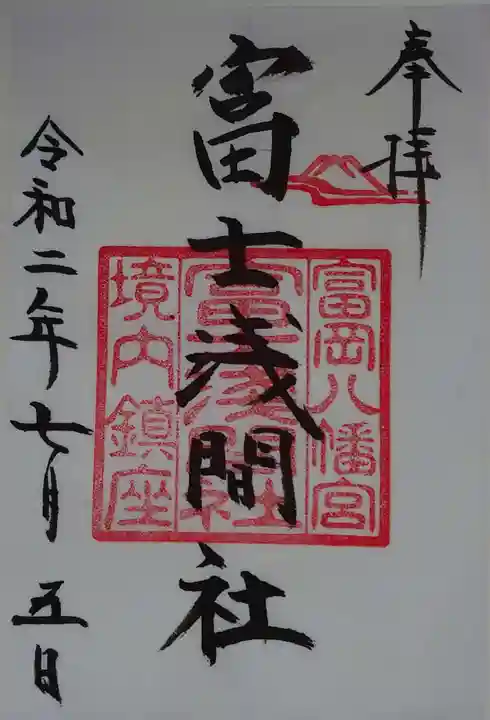 奉拝
富士浅間社
富岡八幡宮
富士浅間社
境内鎮座
令和二年七月五日